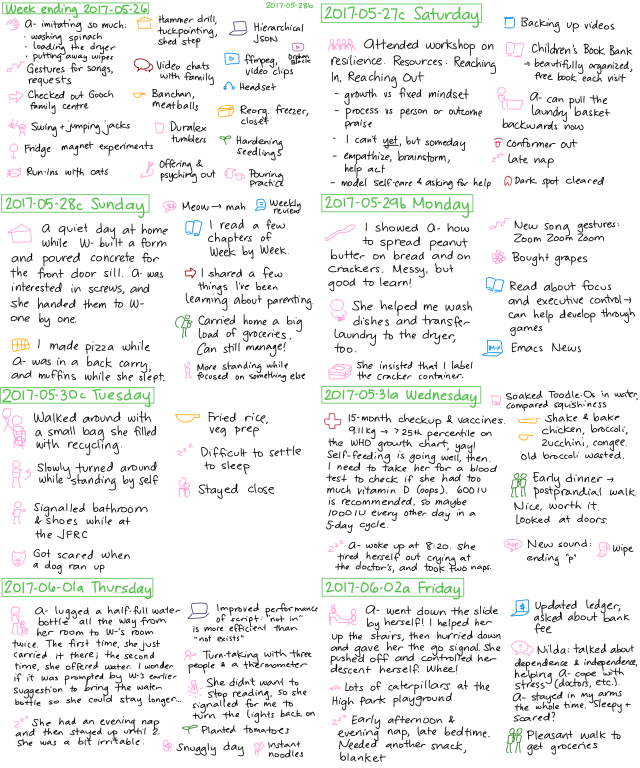 Week ending 2017-05-26
2017-05-28b
A- imitating so much:
· washing spinach
· loading the dryer
· putting away wipes
Gestures for songs,
requests
Checked out Gooch
family centre
Swing + jumping jacks
Fridge magnet experiments
Run-ins with cats
Hammer drill,
tuckpointing,
shed step
Video chats
with family
Banchan,
meatballs
Duralex
tumblers
Offering &
psyching out
Hierarchical
JSON
ffmpeg,
video clips
Orphan
Black
Headset
Reorg. freezer,
closet
Hardening
seedlings
Pouring
practice
2017-05-27c Saturday
Attended workshop on
resilience. Resources: Reaching
In, Reaching Out
- growth vs fixed mindset
- process vs person or outcome
praise
- I can't yet, but someday
- empathize, brainstorm,
help act
- model self-care & asking for help
Backing up videos
Children's Book Bank
→ beautifully organized,
free book each visit
A- can pull the
laundry basket
backwards now
Conformer out
zzz late nap
Dark spot cleared
2017-05-28c Sunday
A quiet day at home
while W- built a form
and poured concrete for
the front door sill. A- was
interested in screws, and
she handed them to W-
one by one.
I made pizza while
A- was in a back carry,
and muffins while she slept.
Meow → mah
Weekly
review
I read a few
chapters of
Week by Week.
I shared a few
things I've been
learning about parenting.
Carried home a big
load of groceries.
Can still manage!
More standing while
focused on something else
2017-05-29b Monday
I showed A- how
to spread peanut
butter on bread and on
crackers. Messy, but
good to learn!
She helped me wash
dishes and transfer
laundry to the dryer,
too.
She insisted that I label
the cracker container.
New song gestures:
Zoom Zoom Zoom
Bought grapes
Read about focus
and executive control →
can help develop through
games
Emacs News
2017-05-30c Tuesday
Walked around with
a small bag she filled
with recycling.
Slowly turned around
while standing by self
Signalled bathroom
& shoes while at
the JFRC
Got scared when
a dog ran up
Fried rice,
veg prep
zzz Difficult to settle
to sleep
Stayed close
2017-05-31a Wednesday
15-month checkup & vaccines.
9.11kg → >25th percentile on
the WHO growth chart, yay!
Self-feeding is going well, then.
I need to take her for a blood
test to check if she had too
much vitamin D (oops). 600 IU
is recommended, so maybe
1000 IU every other day in a
5-day cycle.
zzz A- woke up at 8:20. She
tired herself out crying at
the doctor's, and took two naps.
Soaked Toodle-Os in water,
compared squishiness
Shake & bake
chicken, broccoli,
zucchini, congee.
old broccoli wasted.
Early dinner →
postprandial walk.
Nice, worth it.
Looked at doors.
New sound:
ending "p"
Wipe
2017-06-01a Thursday
A- lugged a half-full water
bottle all the way from
her room to W-'s room
twice. The first time, she just
carried it there; the second
time, she offered water. I wonder
if it was prompted by W-'s earlier
suggestion to bring the water
bottle so she could stay longer...
zzz She had an evening nap
and then stayed up until 2.
She was a bit irritable.
Improved performance
of script: "not in"
is more efficient than
"not exists"
Turn-taking with three
people & a thermometer
She didn't want to
stop reading, so she
signalled for me to
turn the lights back on
Planted tomatoes
Snuggly day
Instant
noodles
2017-06-02a Friday
A- went down the slide
by herself! I helped her
up the stairs, then hurried down
and gave her the go signal. She
pushed off and controlled her
descent herself. Whee!
Lots of caterpillars at the
High Park playground
zzz Early afternoon &
evening nap, late bedtime.
Needed another snack,
blanket
Updated ledger,
asked about bank
fee
Nilda: talked about
dependence & independence,
helping A- cope with
stress (doctors, etc.).
A- stayed in my arms
the whole time. Sleepy +
scared?
Pleasant walk to
get groceries